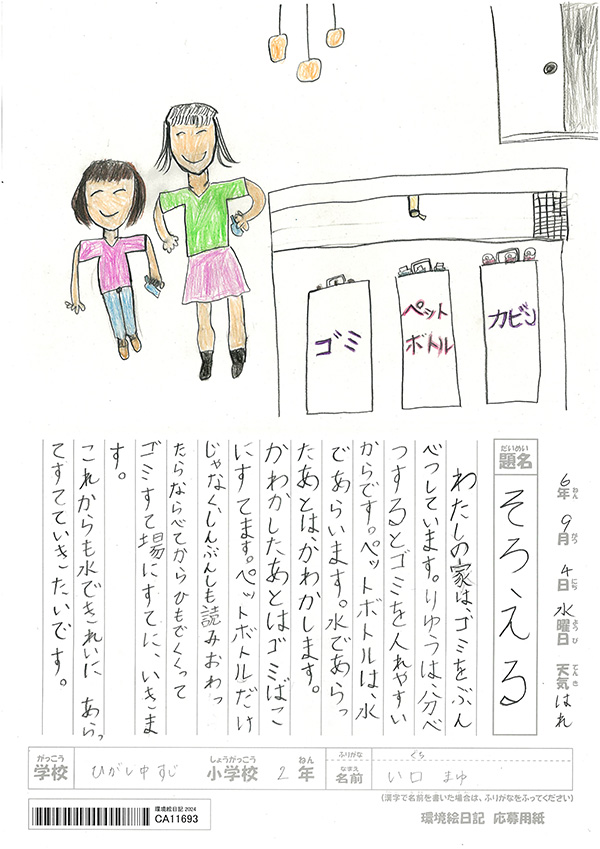 ゴミ
ペット
ボトル
カビン
6年9月4日水曜日天気はれ
ねん
がつ
にち
ようび
てんき
だいめい
題名
そろえる
わたしの家は、ゴミをぶん
べつしています。りゆうは、分べ
つするとゴミを入れやすい
からです。ペットボトルは、水
であらいます。水であらっ
たあとは、かわかします。
かわかしたあとはゴミばこ
にすてます。ペットボトルだけ
じゃなく、しんぶんしも読みおわっ
たらならべてからひもでくくって
ゴミすて場にすてに、いきま
す。
これからも水できれいに あらっ
てすてていきたいです。
がっこう
学校
ひがし中すじ
しょうがっこう
小学校
2
ねん
年
ふりがな
ぐち
なまえ
名前
い口 まゆ
(漢字で名前を書いた場合は、ふりがなをふってください)
環境絵日記 2024
CA11693
環境絵日記 応募用紙